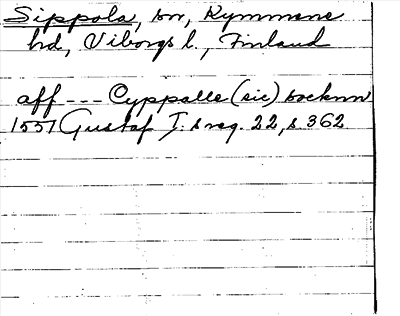 Sippola, sn, Kymmene
hd, Viborgs l., Finland
aff --- Cyppalle (sic) socknn
1551 Gustaf I:s reg. 22, s. 362